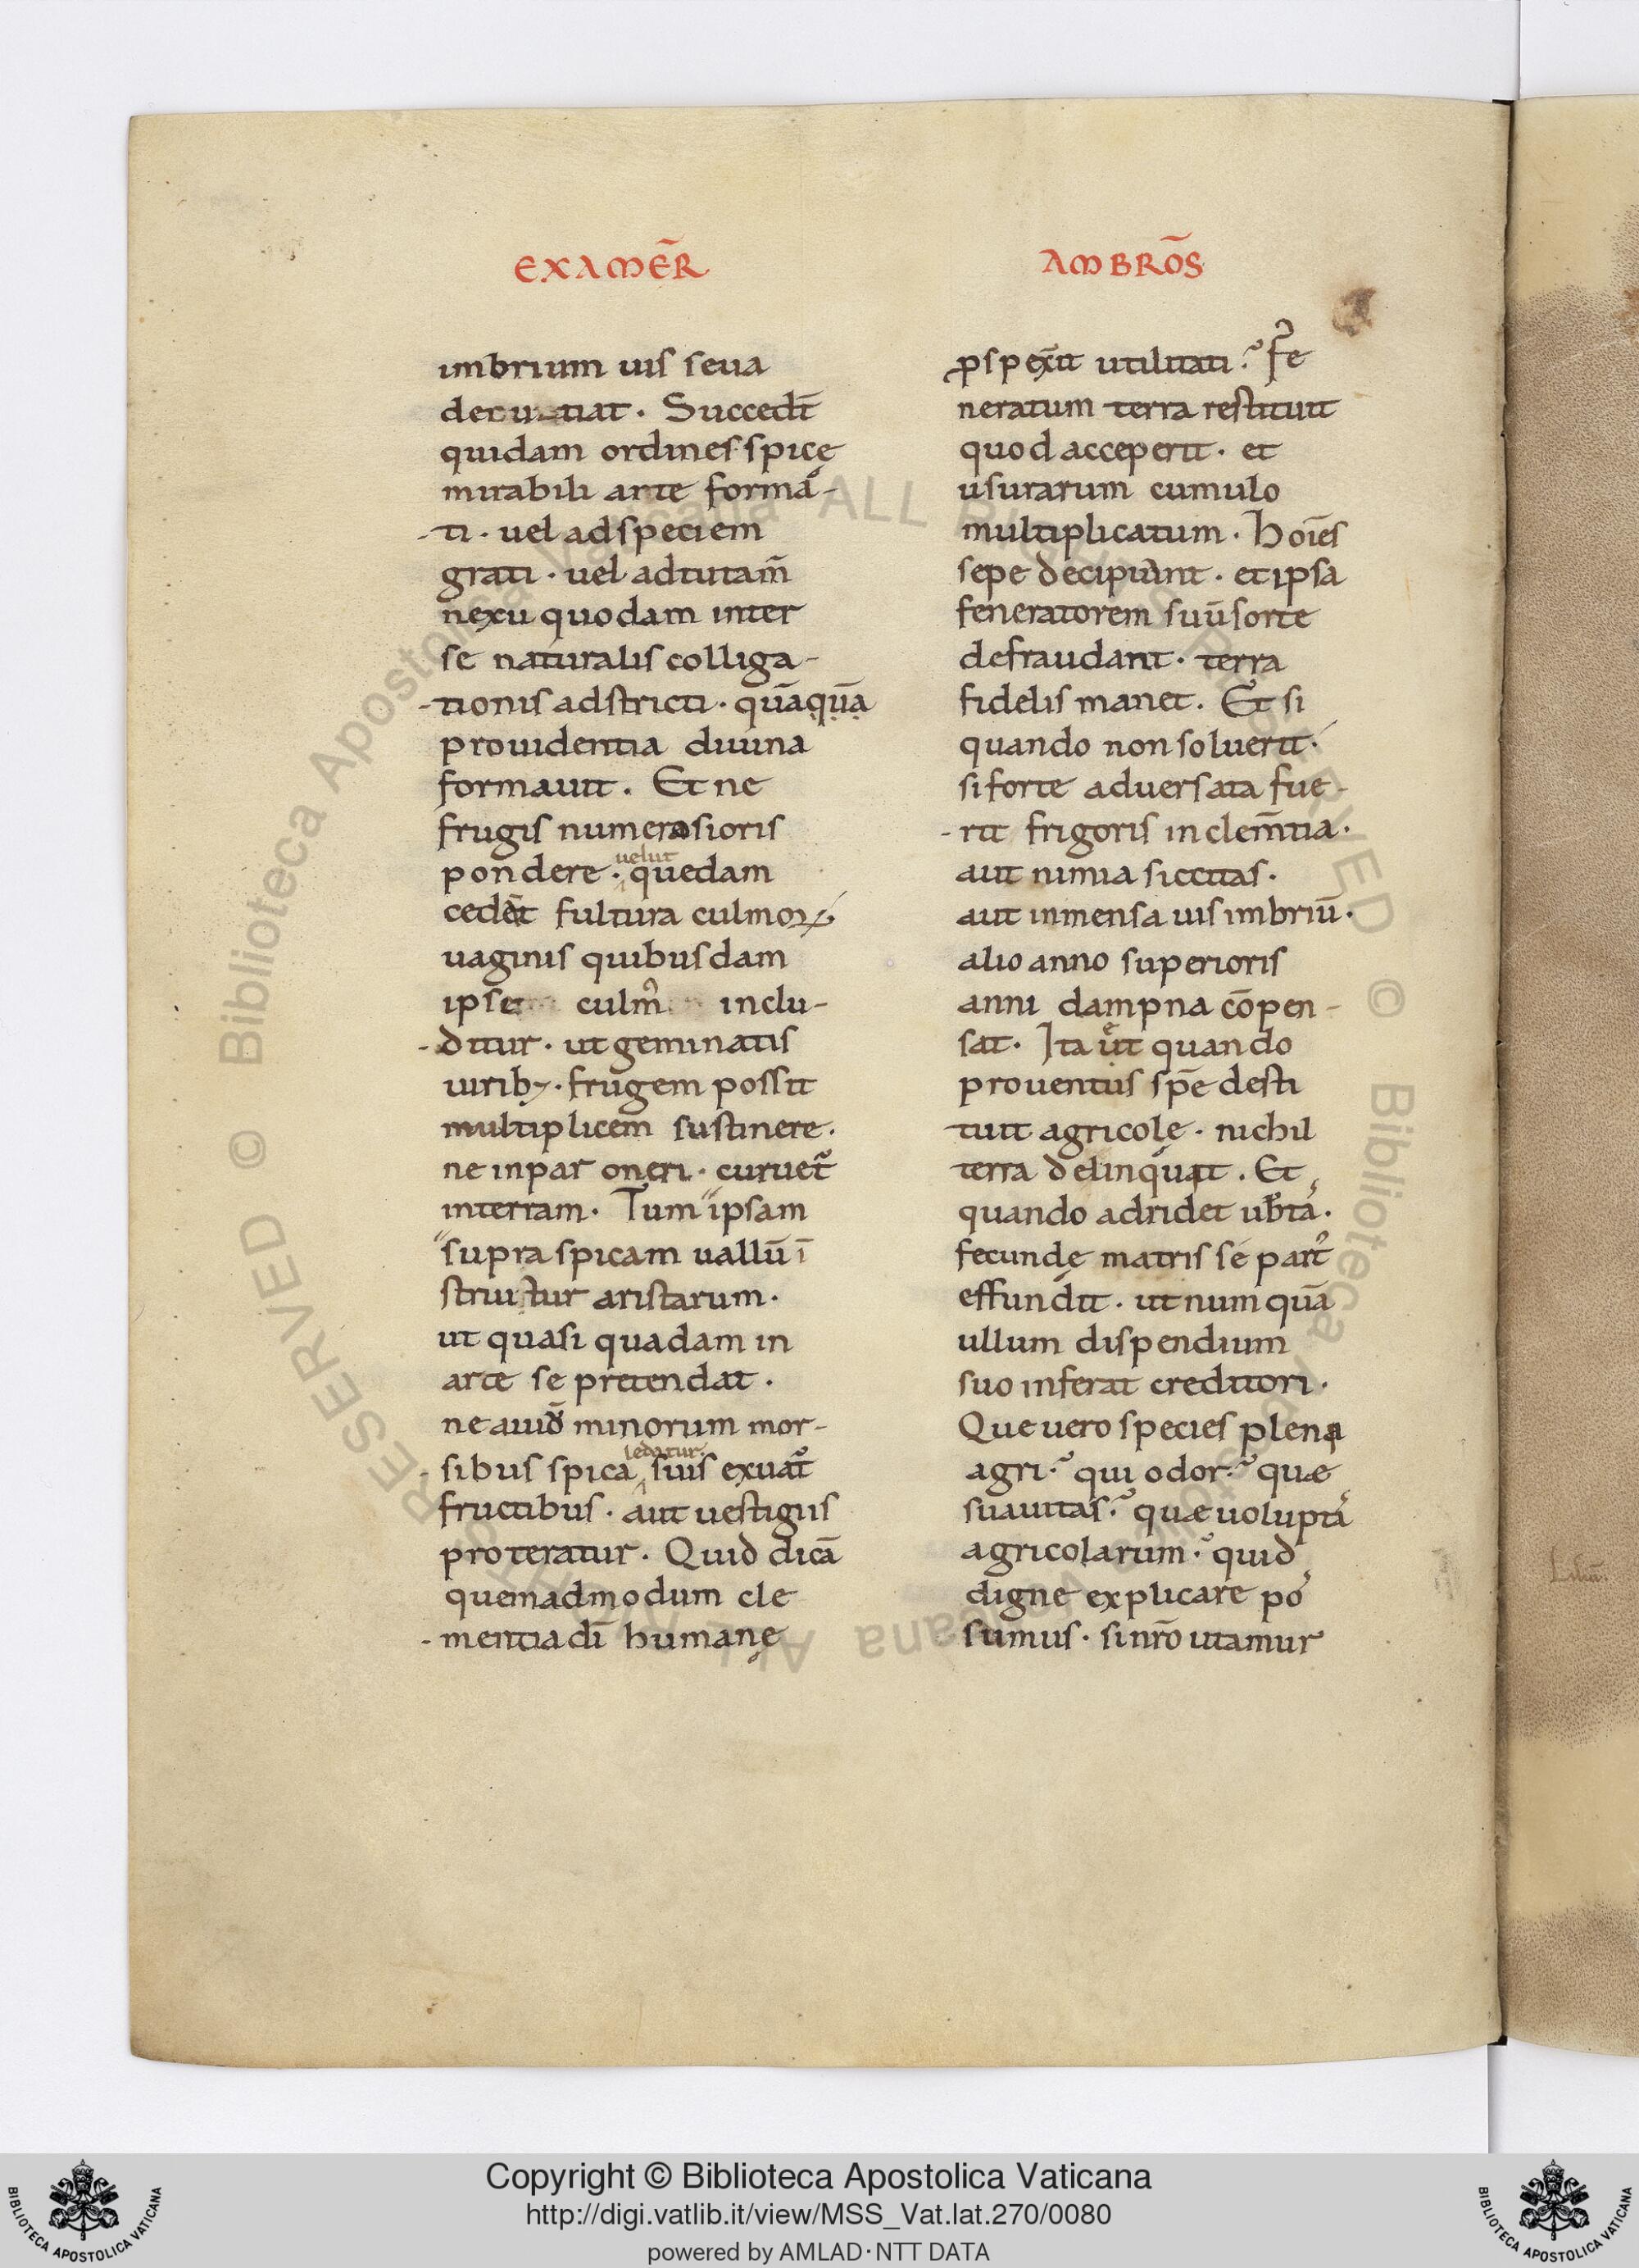 EXAMER̄
imbrium uis seua
decutiat. Succedt̄
quidam ordines spicę
mirabili arte forma-
-ti. uel ad speciem
grati. uel ad tutam̄
nexu quodam inter
se naturalis colliga-
-tionis adstricti. quā quā
prouidentia diuina
formauit. Et ne
frugis numerosioris
velut
pondere. quedam
cedēt fultura culmoꝝ
uaginis quibusdam
ipse culm̄ inclu-
-ditur. ut geminatis
uirib; frugem possit
multiplicem sustinere.
ne inpar oneri. curuet᷑
in terram. Tum ipsam
supra spicam uallū ī
struitur aristarum.
ut quasi quadam in
arce se pretendat.
ne auiū minorum mor-
ledatur.
-sibus spica suis exuat᷑
fructibus. aut uestigiis
proteratur. Quid dicā
quemadmodum cle
-mentia dī humanę
AMBRO̅S
ꝓspexit utilitati? Fe
neratum terra restituit
quod acceperit. et
usurarum cumulo
multiplicatum. Hoīes
sepe decipiunt. et ipsa
feneratorem suū sorte
defraudant. terra
fidelis manet. Et si
quando non soluerit.
si forte aduersata fue-
-rit frigoris inclem̄tia.
aut nimia siccitas.
aut inmensa uis imbriū.
alio anno superioris
anni dampna cōpen-
sat. Ita et quando
prouentus spē desti
tuit agricolę. nichil
terra delinquit. Et
quando adridet ub̄tas.
fecundę matris se part᷑
effundit. ut num quā
ullum dispendium
suo inferat creditori.
Que uero species pleni
agri? qui odor? quæ
suauitas? quæ uoluptas
agricolarum? quid
digne explicare pos
sumus. si nrō utamur
Copyright © Biblioteca Apostolica Vaticana
http://digi.vatlib.it/view/MSS_Vat.lat.270/0080
powered by AMLAD·NTT DATA